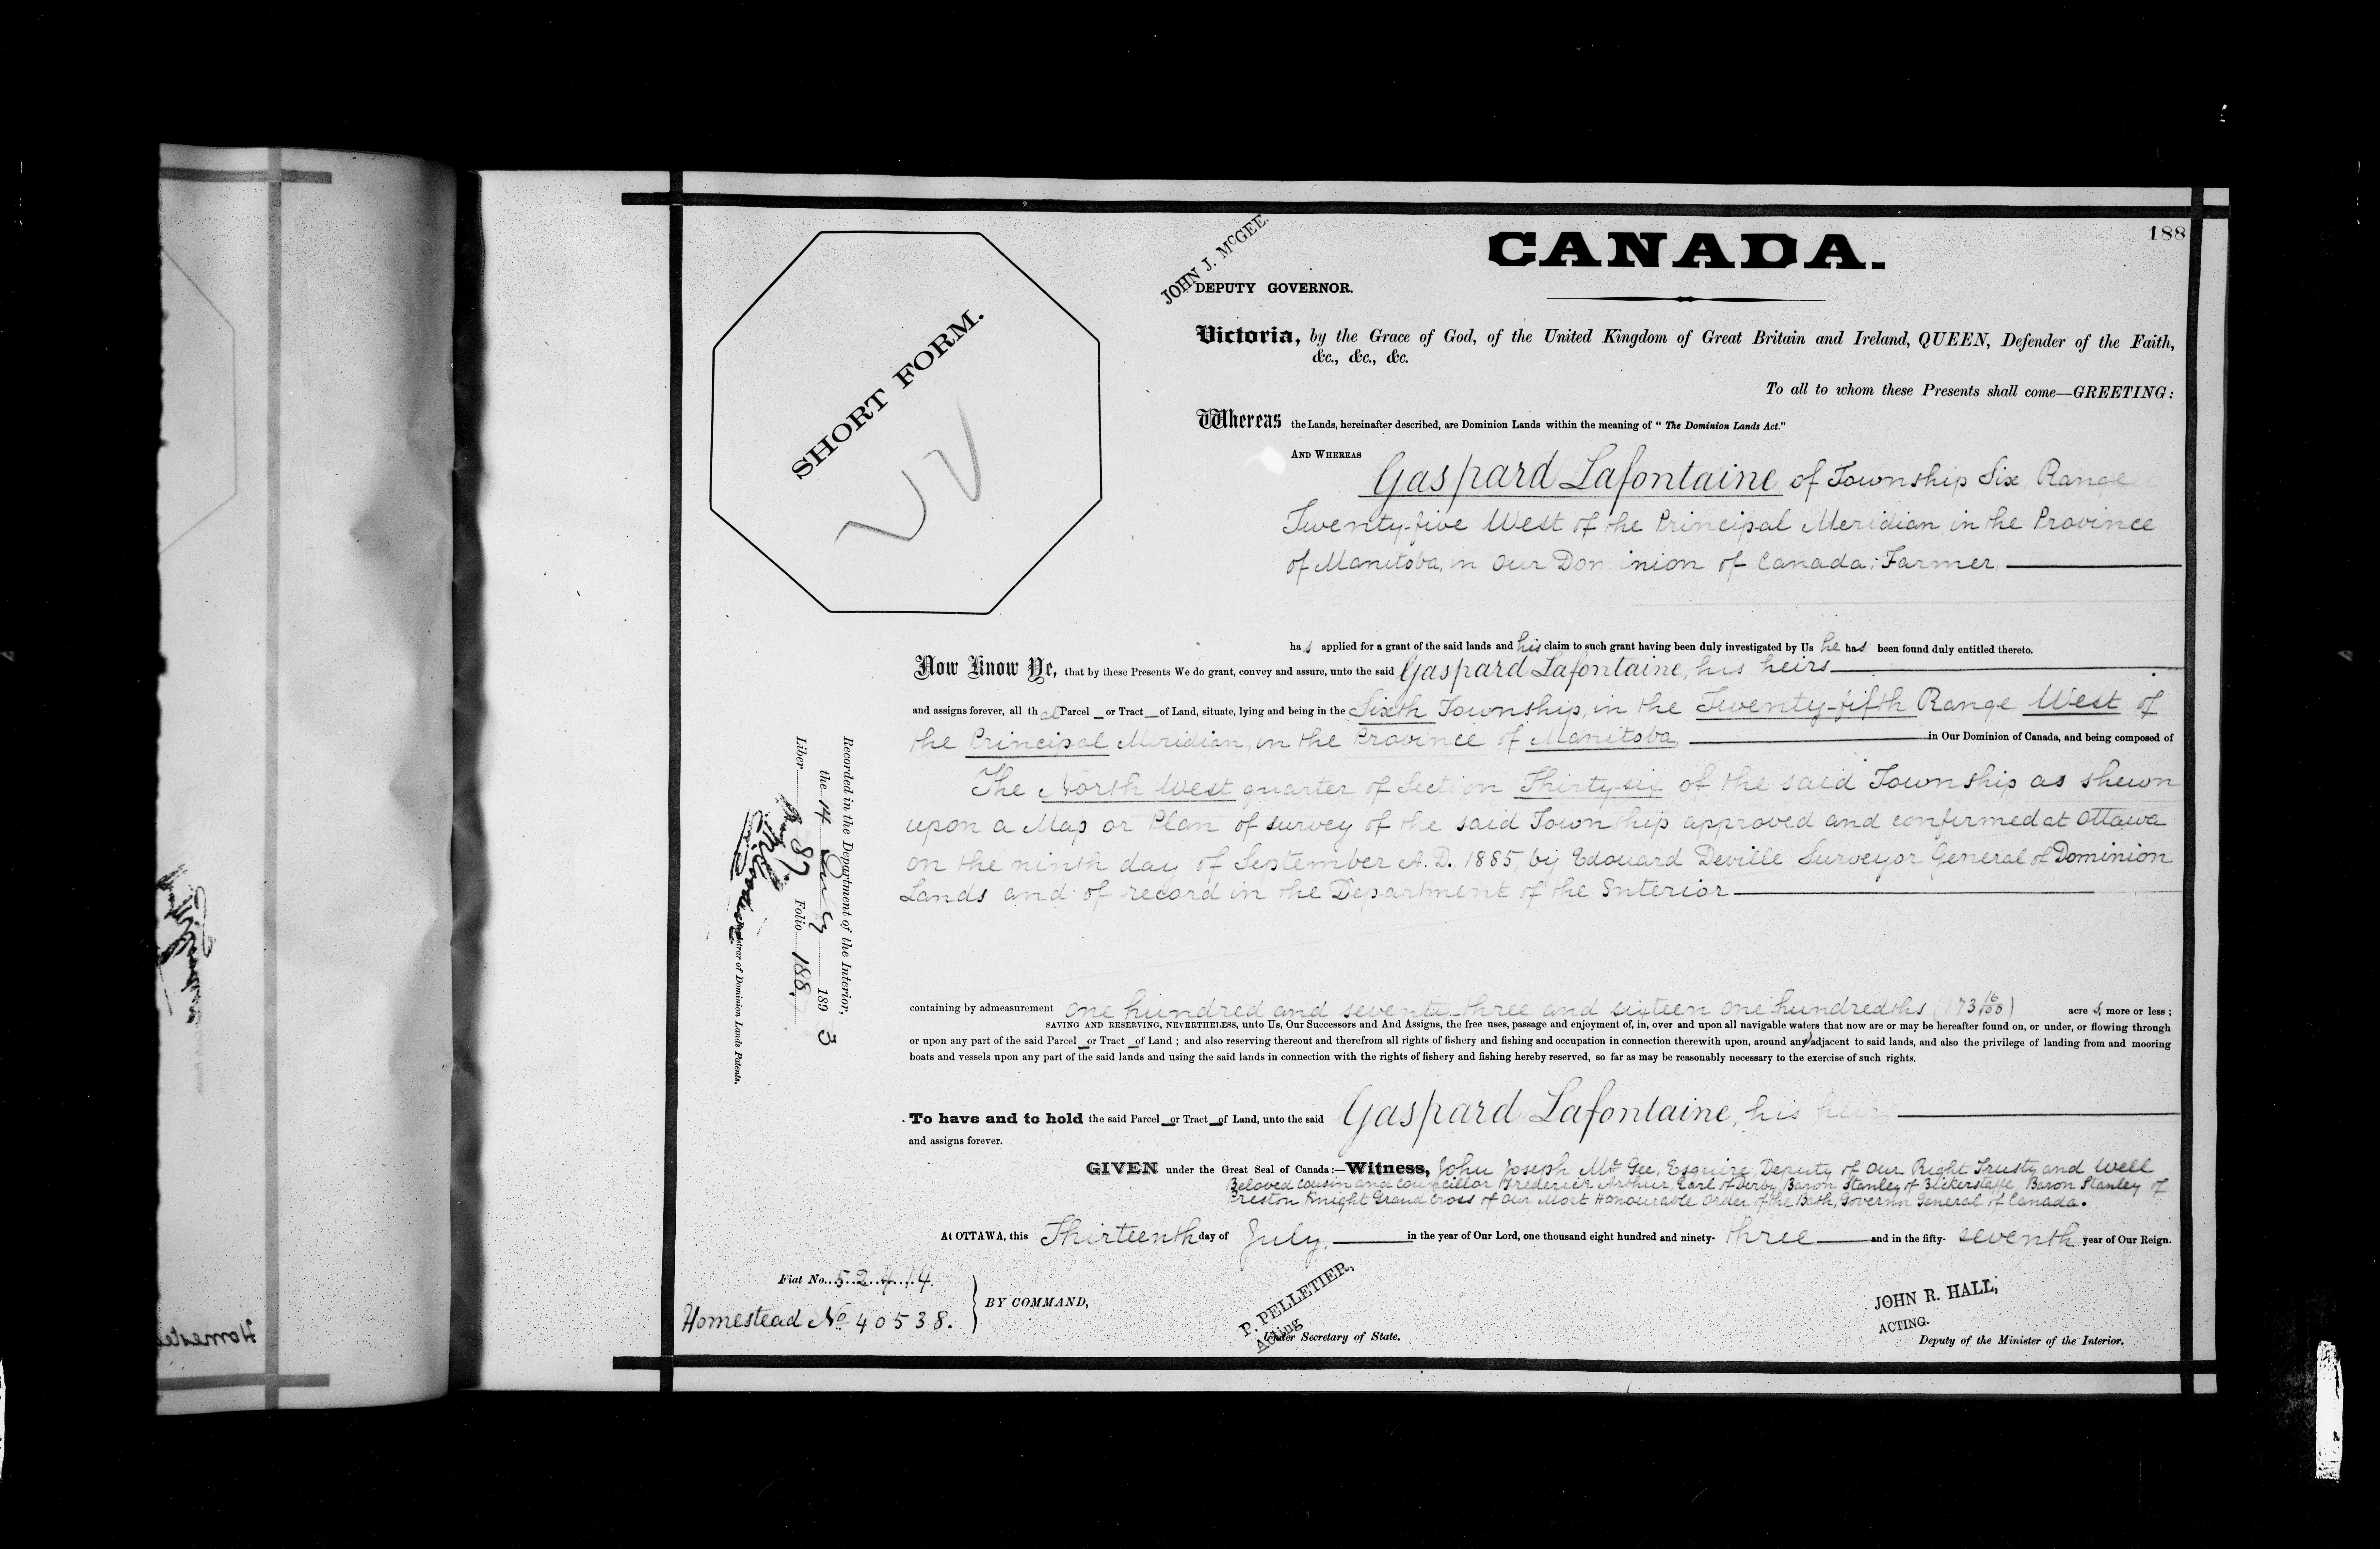 188
CANADA.
JOHN J. McGEE.
DEPUTY GOVERNOR.
SHORT FORM.
Victoria, by the Grace of God, of the United Kingdom of Great Britain and Ireland, QUEEN, Defender of the Faith,
&c., &c., &c.
To all to whom these Presents shall come—GREETING:
Whereas the Lands, hereinafter described, are Dominion Lands within the meaning of "The Dominion Lands Act."
AND WHEREAS
Gaspard Lafontaine of Township Six, Range
Twenty-five West of the Principal Meridian, in the Province
of Manitoba, in Our Dominion of Canada; Farmer
has applied for a grant of the said lands and his claim to such grant having been duly investigated by Us he has been found duly entitled thereto.
Now Know Ye, that by these Presents We do grant, convey and assure, unto the said Gaspard Lafontaine, his heirs
and assigns forever, all that Parcel or Tract of Land, situate, lying and being in the Sixth Township, in the Twenty-fifth Range West of
the Principal Meridian, in the Province of Manitoba, in Our Dominion of Canada, and being composed of
The North West quarter of Section Thirty-six of the said Township as shewn
upon a Map or Plan of survey of the said Township approved and confirmed at Ottawa
on the ninth day of September A.D. 1885, by Edouard Deville Surveyor General of Dominion
Lands and of record in the Department of the Interior
containing by admeasurement one hundred and seventy-three and sixteen one hundredths (173 16/100) acres, more or less;
SAVING AND RESERVING, NEVERTHELESS, unto Us, Our Successors and And Assigns, the free uses, passage and enjoyment of, in, over and upon all navigable waters that now are or may be hereafter found on, or under, or flowing through
or upon any part of the said Parcel or Tract of Land; and also reserving thereout and therefrom all rights of fishery and fishing and occupation in connection therewith upon, around and adjacent to said lands, and also the privilege of landing from and mooring
boats and vessels upon any part of the said lands and using the said lands in connection with the rights of fishery and fishing hereby reserved, so far as may be reasonably necessary to the exercise of such rights.
To have and to hold the said Parcel or Tract of Land, unto the said Gaspard Lafontaine, his heirs
and assigns forever.
GIVEN under the Great Seal of Canada:—Witness, John Joseph McGee, Esquire, Deputy of Our Right Trusty and Well
Beloved Cousin and Councillor Frederick Arthur, Earl of Derby, Baron Stanley of Bickerstaffe, Baron Stanley of
Preston Knight Grand Cross of Our Most Honourable Order of the Bath, Governor General of Canada.
At OTTAWA, this Thirteenth day of July, in the year of Our Lord, one thousand eight hundred and ninety-three and in the fifty-seventh year of Our Reign.
Fiat No. 52414.
Homestead No 40538.
BY COMMAND,
P. PELLETIER,
Acting
Under Secretary of State.
JOHN R. HALL,
ACTING.
Deputy of the Minister of the Interior.
Recorded in the Department of the Interior,
the 14 July 1893
Liber 87 Folio 188.
Registrar of Dominion Lands Patents.